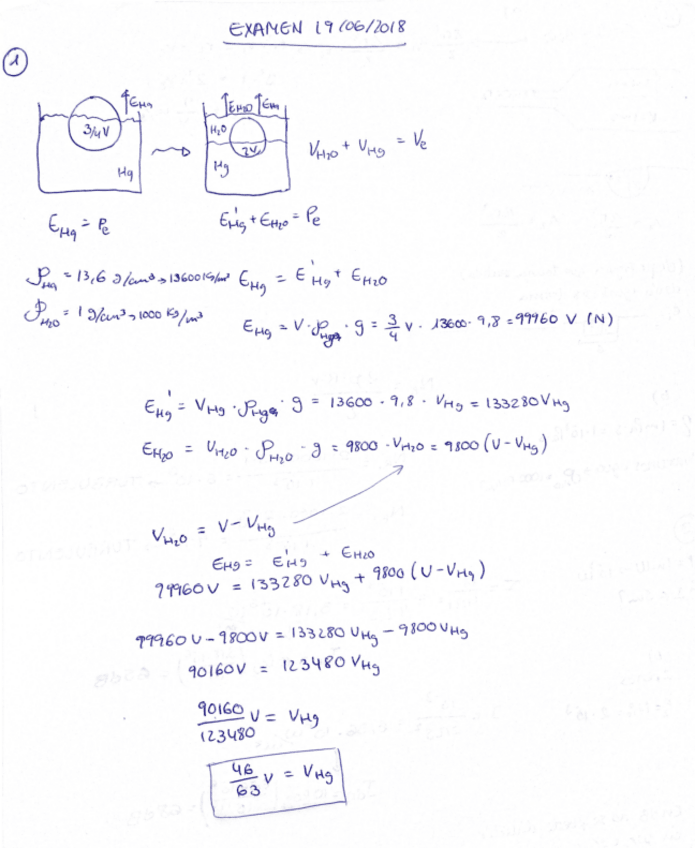 EXAMEN 19/06/2018
1
E_Hg
3/4 V
Hg
E_H2O E_Hg
H2O
2V
Hg
V_H2O + V_Hg = V_e
E_Hg = P_e
E'_Hg + E_H2O = P_e
ρ_Hg = 13,6 g/cm³ → 13600 Kg/m³ E_Hg = E'_Hg + E_H2O
ρ_H2O = 1 g/cm³ → 1000 Kg/m³
E_Hg = V · ρ_Hg · g = 3/4 V · 13600 · 9,8 = 99960 V (N)
E'_Hg = V_Hg · ρ_Hg · g = 13600 · 9,8 · V_Hg = 133280 V_Hg
E_H2O = V_H2O · ρ_H2O · g = 9800 · V_H2O = 9800 (V - V_Hg)
V_H2O = V - V_Hg
E_Hg = E'_Hg + E_H2O
99960 V = 133280 V_Hg + 9800 (V - V_Hg)
99960 V - 9800 V = 133280 V_Hg - 9800 V_Hg
90160 V = 123480 V_Hg
90160/123480 V = V_Hg
46/63 V = V_Hg